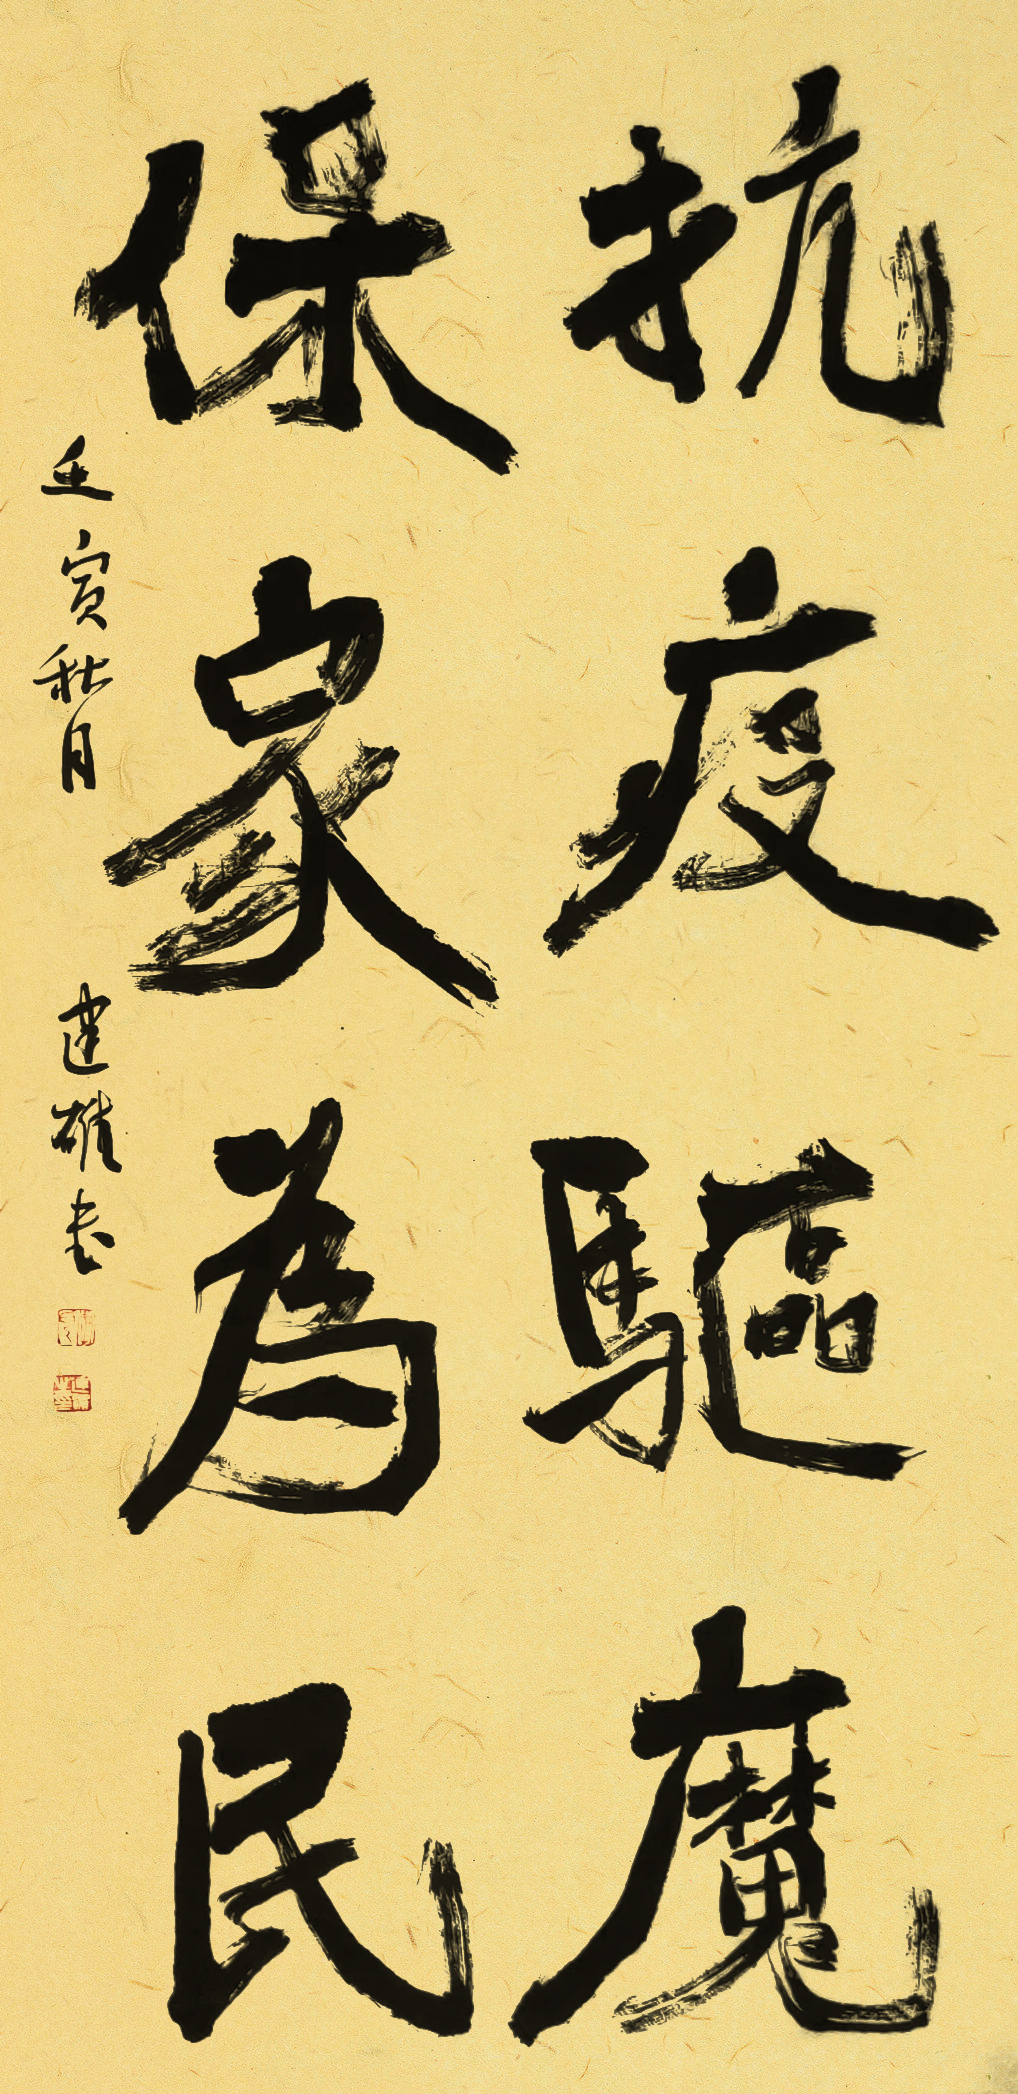 抗疫驅魔
保家為民
壬寅秋月 建雄书